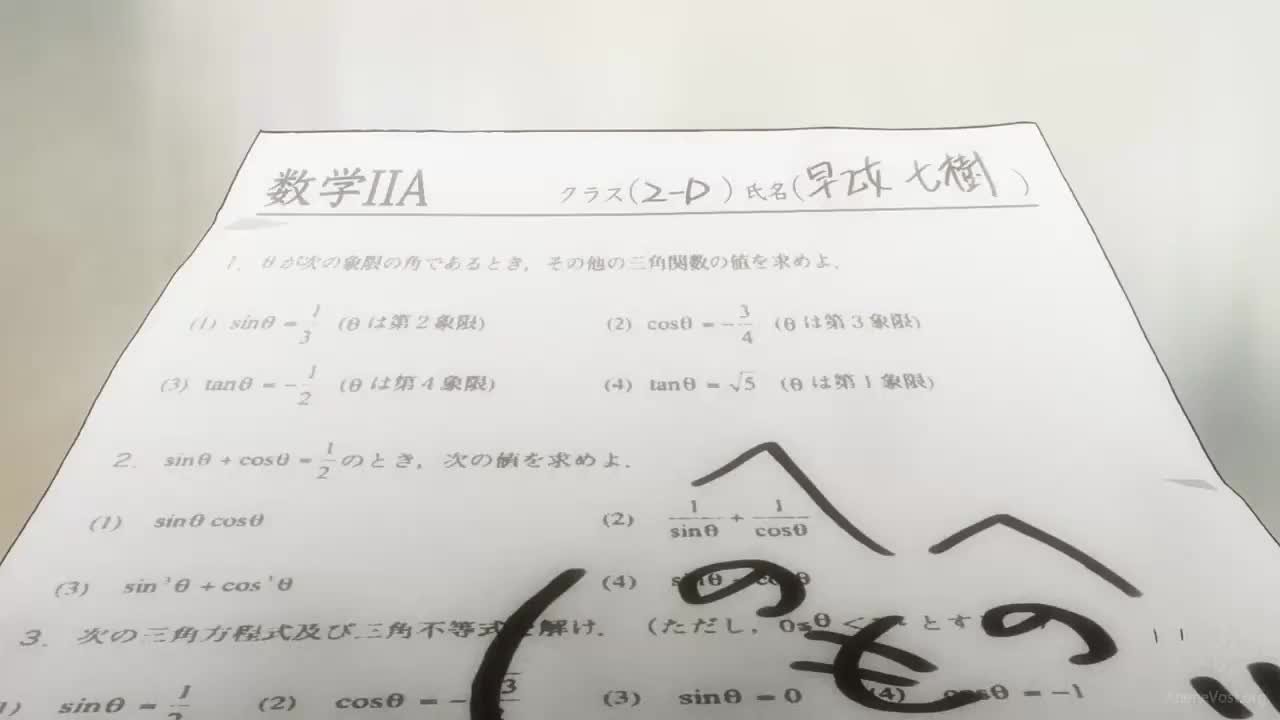 数学IIA クラス(2-D) 氏名(早坂 七樹)
1. θが次の象限の角であるとき, その他の三角関数の値を求めよ.
(1) sinθ = 1/3 (θは第2象限) (2) cosθ = -3/4 (θは第3象限)
(3) tanθ = -1/2 (θは第4象限) (4) tanθ = √5 (θは第1象限)
2. sinθ + cosθ = 1/2 のとき, 次の値を求めよ.
(1) sinθ cosθ (2) 1/sinθ + 1/cosθ
(3) sin³θ + cos³θ (4) sinθ - cosθ
3. 次の三角方程式及び三角不等式を解け. (ただし, 0≦θ<
(1) sinθ = (2) cosθ = - (3) sinθ = 0 (4) cosθ = -1
へ へ
の の
も
AnimeVost.org